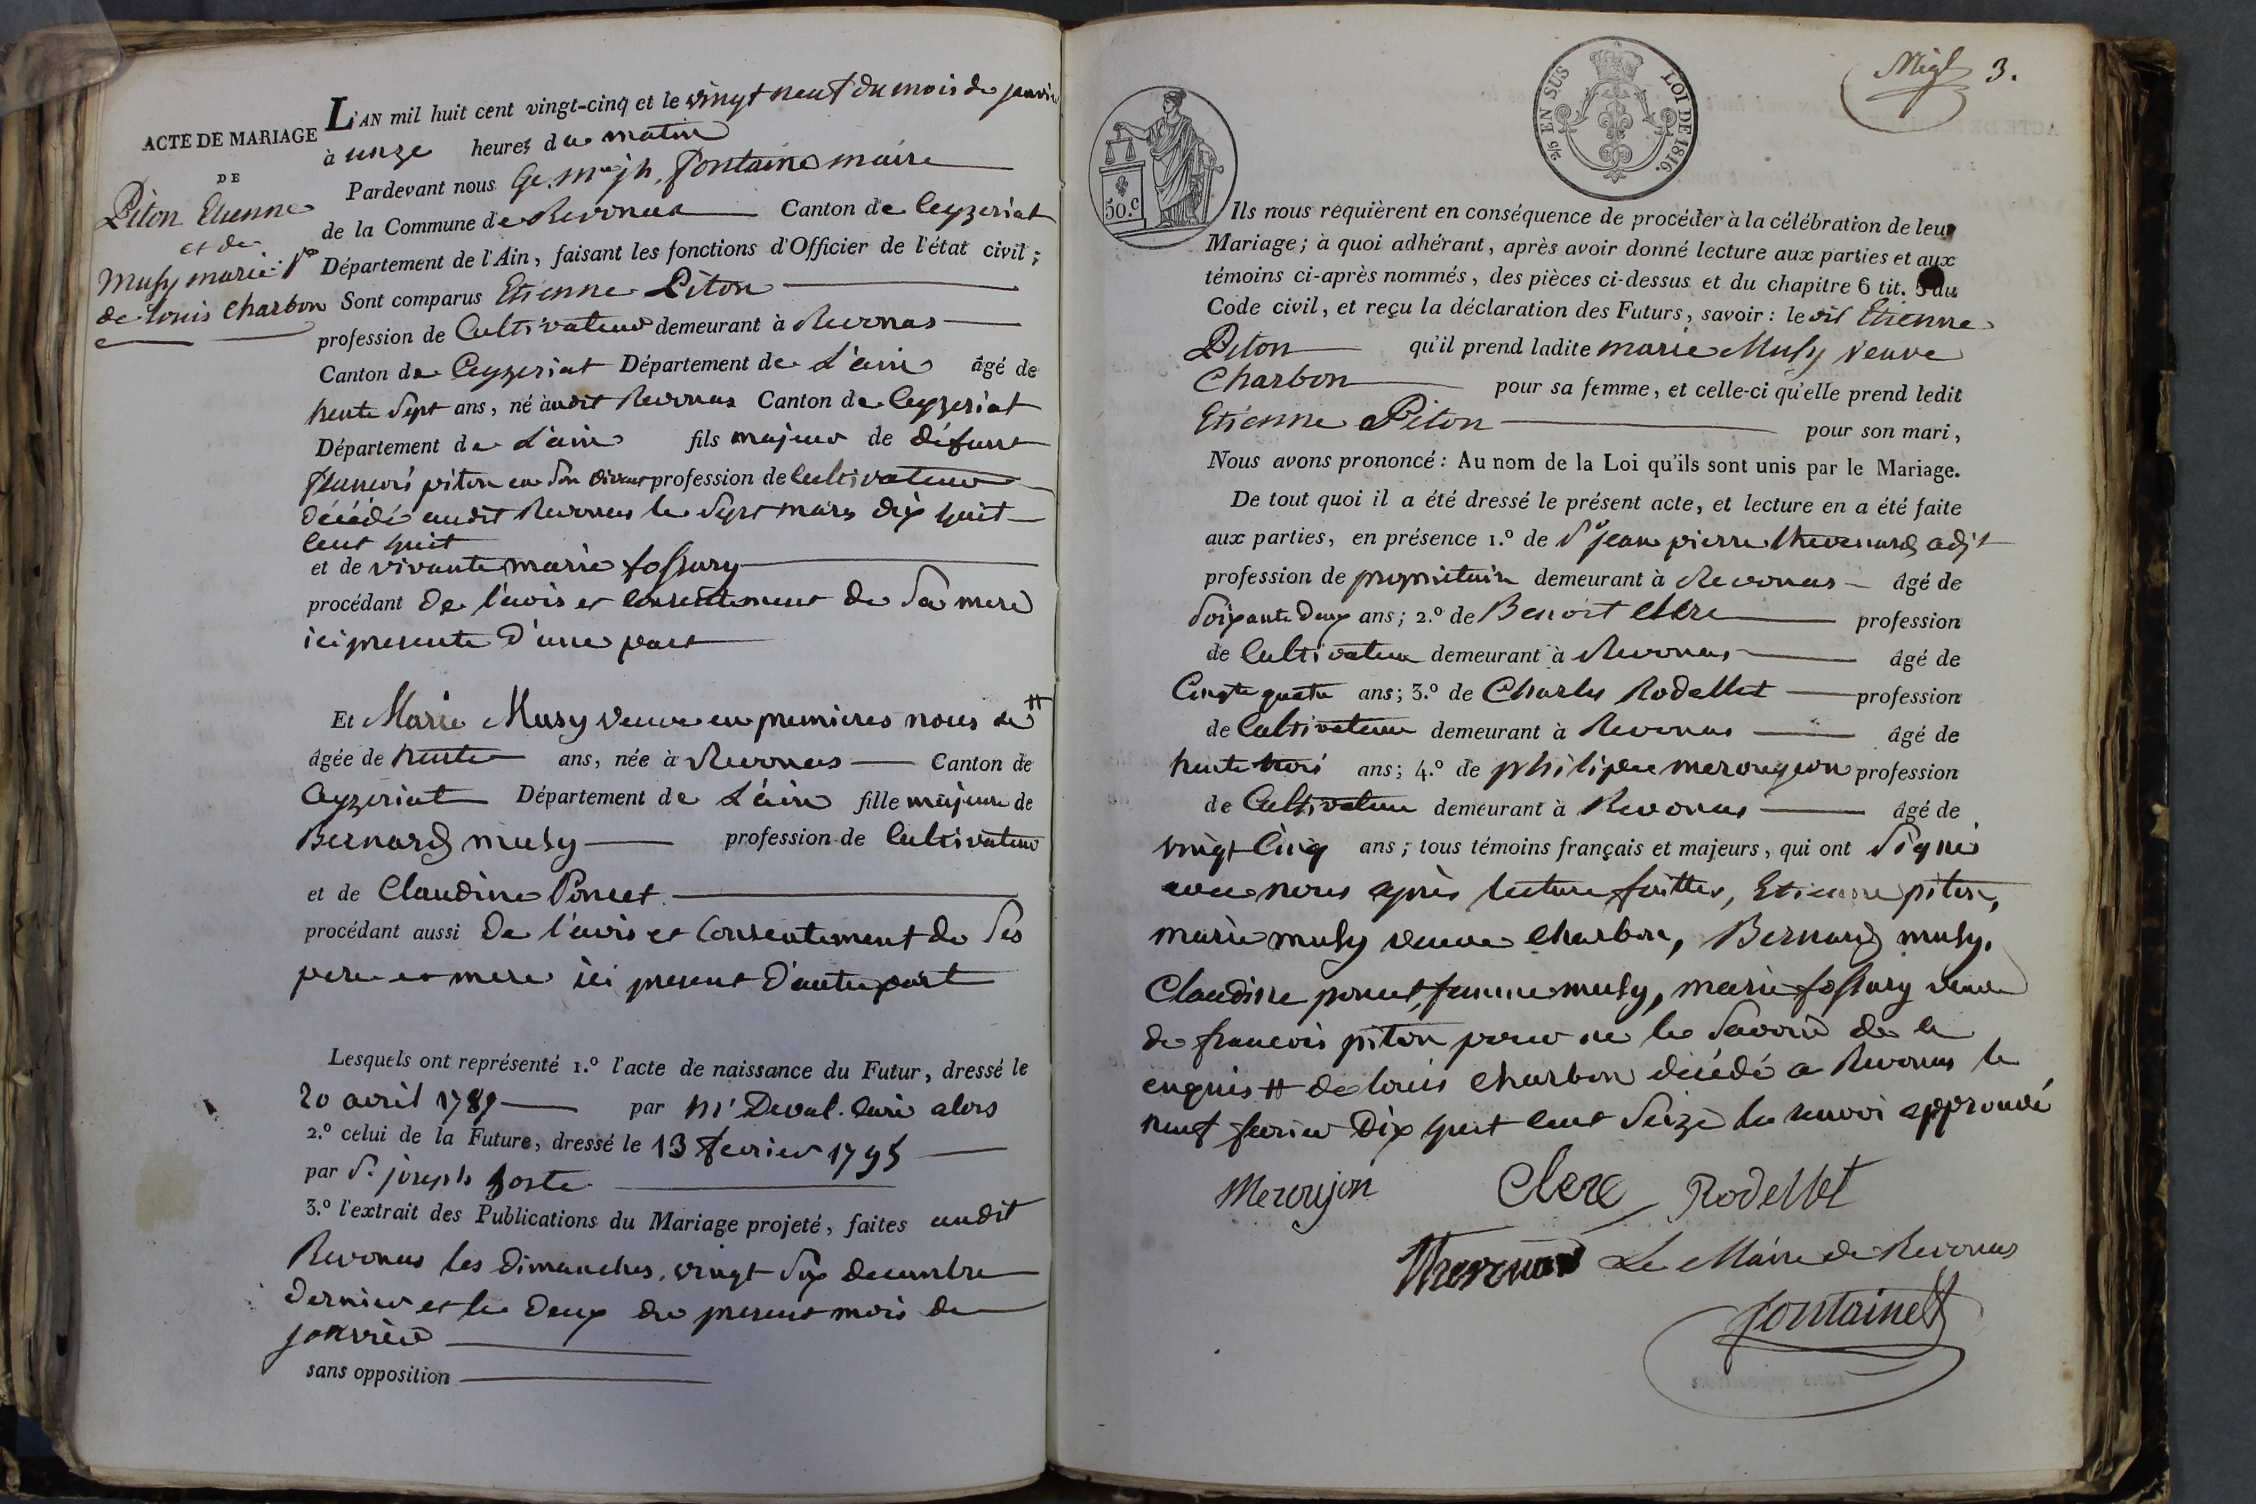 ACTE DE MARIAGE
DE
Piton Etienne
et de
Musy marie Ve
de Louis Charbon
L'AN mil huit cent vingt-cinq et le vingt neuf du mois de janvier
à unze heures du matin
Pardevant nous Ge. Mie jh. fontaine maire
de la Commune de Revonas Canton de Ceyzeriat
Département de l'Ain, faisant les fonctions d'Officier de l'état civil;
Sont comparus Etienne Piton
profession de Cultivateur demeurant à Revonas
Canton de Ceyzeriat Département de L'ain âgé de
trente Sept ans, né audit Revonas Canton de Ceyzeriat
Département de L'ain fils majeur de défunt
francois piton en son vivant profession de Cultivateur
décédé audit Revonas le Sept mars dix huit
Cent huit
et de vivante marie fossury
procédant de l'avis et Consentement de Sa mere
ici presente d'une part
Et Marie Musy veuve en premieres noces de #
âgée de trente ans, née à Revonas Canton de
Ceyzeriat Département de L'ain fille majeure de
Bernard musy profession de Cultivateur
et de Claudine Poncet
procédant aussi de l'avis et Consentement de Ses
pere et mere ici present d'autre part
Lesquels ont représenté 1.º l'acte de naissance du Futur, dressé le
20 avril 1787 par Mr Deval. Curé alors
2.º celui de la Future, dressé le 13 fevrier 1795
par Sr joseph
3.º l'extrait des Publications du Mariage projeté, faites audit
Revonas les dimanches, vingt Six decembre
dernier et le deux du present mois de
janvier
sans opposition
3.
50.C
2/5 EN SUS LOI DE 1816.
Ils nous requièrent en conséquence de procéder à la célébration de leur
Mariage; à quoi adhérant, après avoir donné lecture aux parties et aux
témoins ci-après nommés, des pièces ci-dessus et du chapitre 6 tit. 5 du
Code civil, et reçu la déclaration des Futurs, savoir: le dit Etienne
Piton qu'il prend ladite marie Musy veuve
Charbon pour sa femme, et celle-ci qu'elle prend ledit
Etienne Piton pour son mari,
Nous avons prononcé: Au nom de la Loi qu'ils sont unis par le Mariage.
De tout quoi il a été dressé le présent acte, et lecture en a été faite
aux parties, en présence 1.º de Sr jean pierre thevenard adjt
profession de proprietaire demeurant à Revonas âgé de
Soixante deux ans; 2.º de Benoit Clere profession
de Cultivateur demeurant à Revonas âgé de
Cinqte quatre ans; 3.º de Charles Rodellet profession
de Cultivateur demeurant à Revonas âgé de
trente trois ans; 4.º de philipe merougeon profession
de Cultivateur demeurant à Revonas âgé de
vingt Cinq ans; tous témoins français et majeurs, qui ont Signé
avec nous après lecture faittes, Etienne piton,
marie musy veuve Charbon, Bernard musy,
Claudine poncet, femme musy, marie fossury veuve
de francois piton pour ne le Savoir de ce
enquis # de louis Charbon décédé a Revonas le
neuf fevrier dix huit cent Seize le renvoi approuvé
Meroujon Clere Rodellet
Thevenard Le Maire de Revonas
fontaine